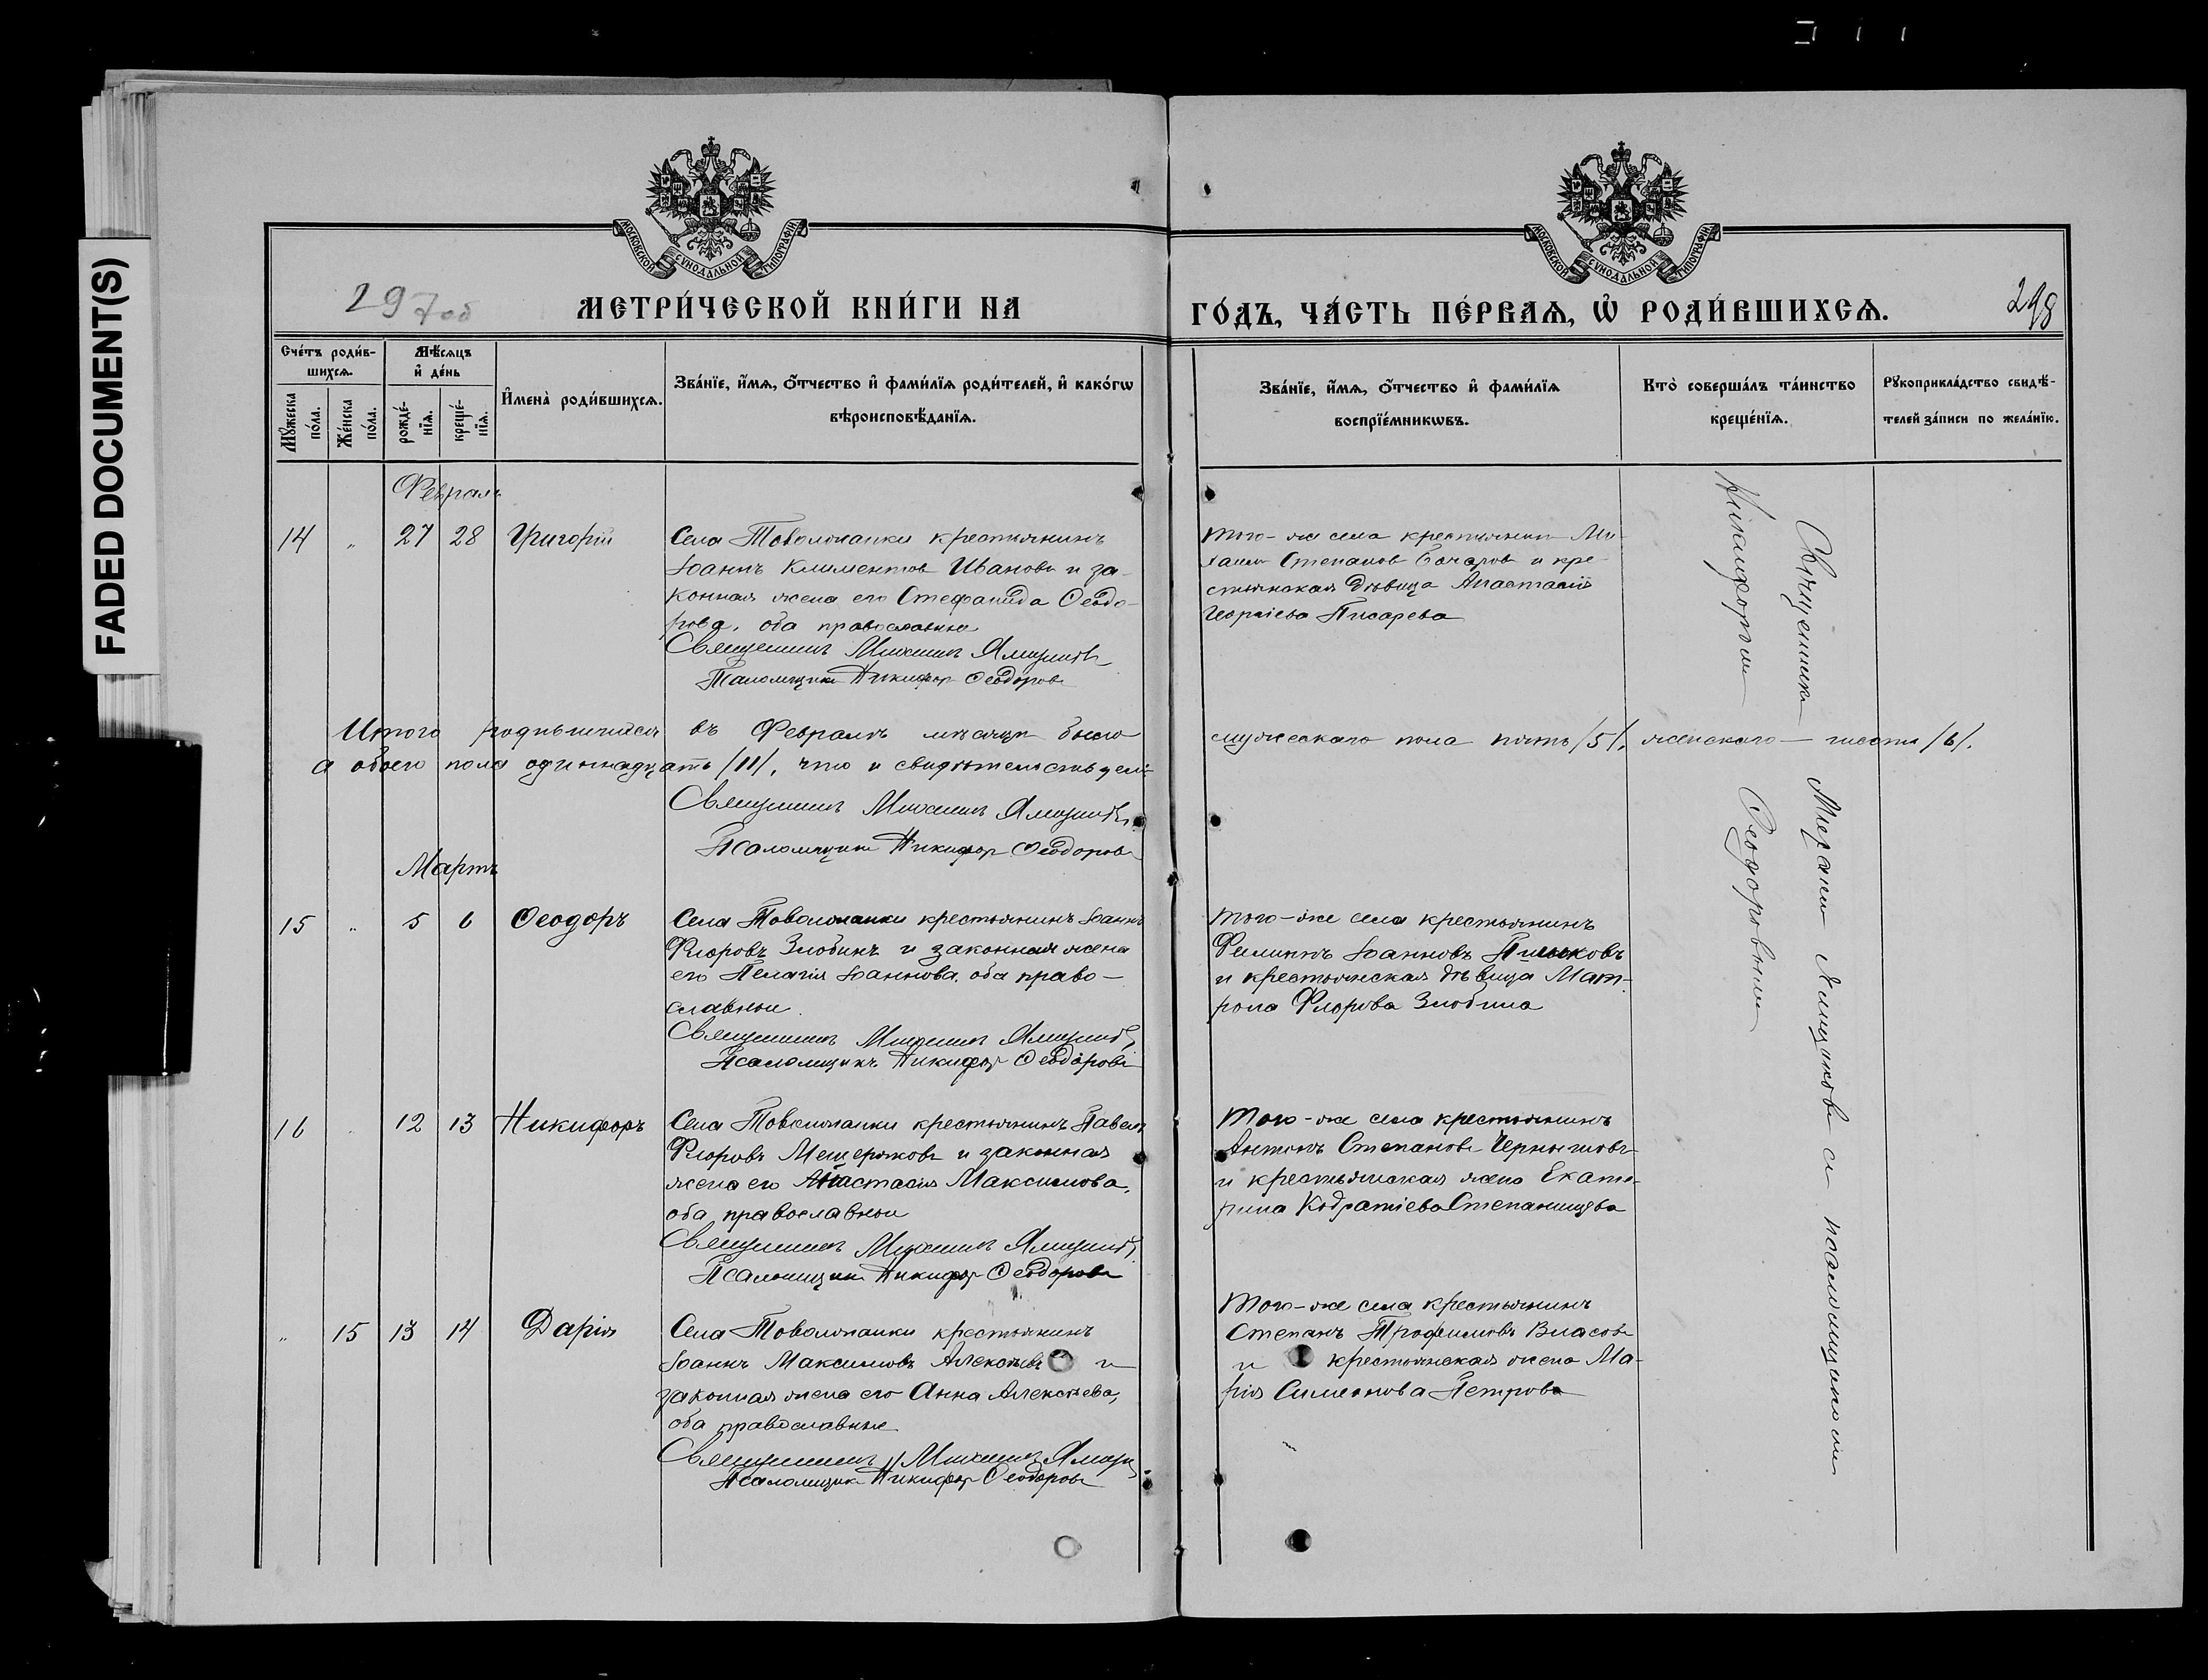 FADED DOCUMENT(S)
МОСКОВСКОЙ СѴНОДАЛЬНОЙ ТИПОГРАФІИ
МОСКОВСКОЙ СѴНОДАЛЬНОЙ ТИПОГРАФІИ
297об
МЕТРИ́ЧЕСКОЙ КНИ́ГИ НА
ГО́ДЪ, ЧА́СТЬ ПЕ́РВАѦ, Ѡ҆ РОДИ́ВШИХСѦ.
298
Сче́тъ роди́в-
шихсѧ.
Мѣ́сѧцъ
и҆ де́нь
Мꙋ́жеска
по́ла.
Же́нска
по́ла.
рожде́-
нїѧ.
креще́-
нїѧ.
И҆мена̀ роди́вшихсѧ.
Зва́нїе, и҆́мѧ, ѻ҆́тчество и҆ фами́лїѧ роди́телей, и҆ како́гѡ
вѣроисповѣ́данїѧ.
Зва́нїе, и҆́мѧ, ѻ҆́тчество и҆ фами́лїѧ
воспрїе́мникѡвъ.
Кто̀ соверша́лъ та́инство
креще́нїѧ.
Рꙋкоприкла́дство свидѣ́-
телей за́писи по жела́нїю.
Февраль
14 " 27 28 Григорій
Села Товолжанки крестьянинъ
Іоаннъ Климентов Ивановъ и за-
конная жена его Стефанида Ѳеодо-
рова, оба православные
Священникъ Михаилъ Ямщиковъ
Псаломщикъ Никифор Ѳеодоровъ
Того-же села крестьянин Ми-
хаил Степанов Бочаров и кре-
стьянская дѣвица Анастасія
Георгіева Писарева
Итого родившихся въ Февралѣ мѣсяцѣ было мужескаго пола пять /5/, женскаго — шесть /6/.
а обоего пола одиннадцать /11/, что и свидѣтельствуемъ
Священникъ Михаилъ Ямщиковъ
Псаломщикъ Никифор Ѳеодоровъ
Мартъ
15 " 5 6 Ѳеодоръ
Села Товолжанки крестьянинъ Іоаннъ
Флоровъ Злобинъ и законная жена
его Пелагія Іоаннова, оба право-
славные
Священникъ Михаилъ Ямщиковъ
Псаломщикъ Никифор Ѳеодоровъ
Того-же села крестьянинъ
Филиппъ Іоанновъ
и крестьянская дѣвица Мат-
рона Флорова Злобина
16 12 13 Никифоръ
Села Товолжанки крестьянинъ Павелъ
Флоровъ Мещеряковъ и законная
жена его Анастасія Максимова,
оба православные
Священникъ Михаилъ Ямщиковъ
Псаломщикъ Никифор Ѳеодоровъ
Того-же села крестьянинъ
Антонъ Степановъ Чернышовъ
и крестьянская жена Екате-
рина Кодратіева
" 15 13 14 Дарія
Села Товолжанки крестьянинъ
Іоаннъ Максимовъ Алексѣевъ и
законная жена его Анна Алексѣева,
оба православные
Священникъ Михаилъ Ямщи
Псаломщикъ Никифор Ѳеодоровъ
Того-же села крестьянинъ
Степанъ Трофимовъ Власовъ
и крестьянская жена Ма-
рія Симеонова Петрова
Священникъ Михаилъ Ямщиковъ съ псаломщикомъ
Никифоромъ Ѳеодоровымъ